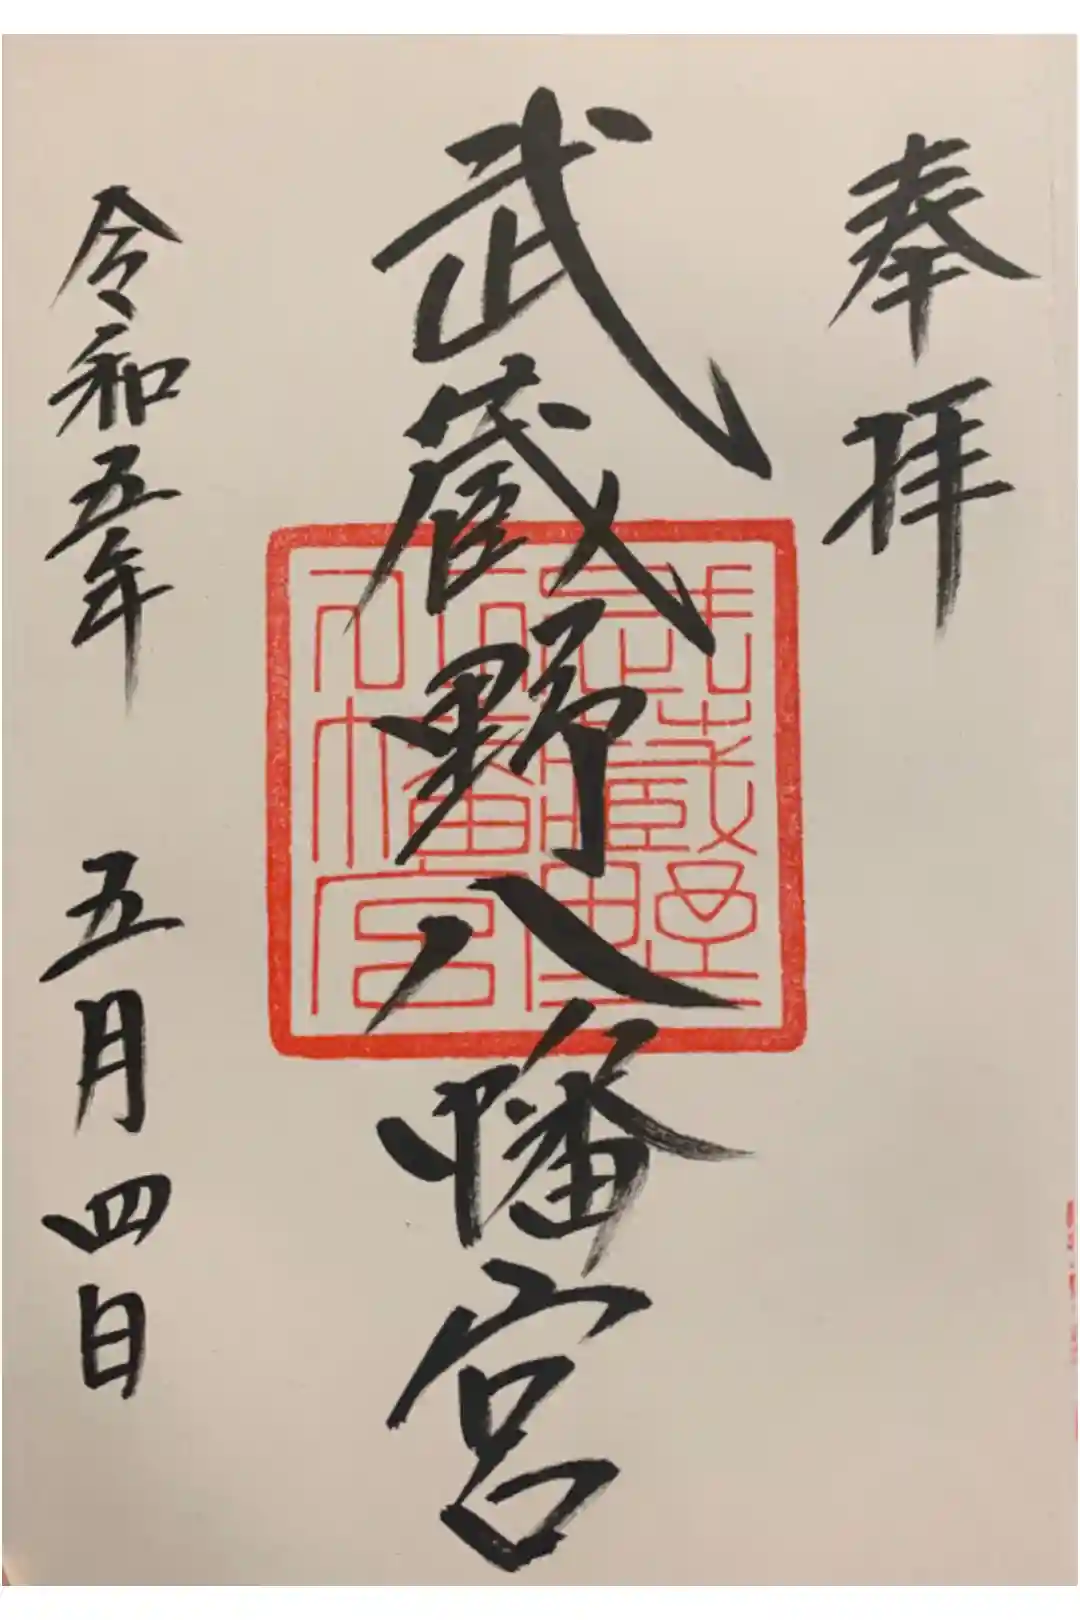 奉拝
武蔵野八幡宮
武蔵野
八幡宮
令和五年 五月四日